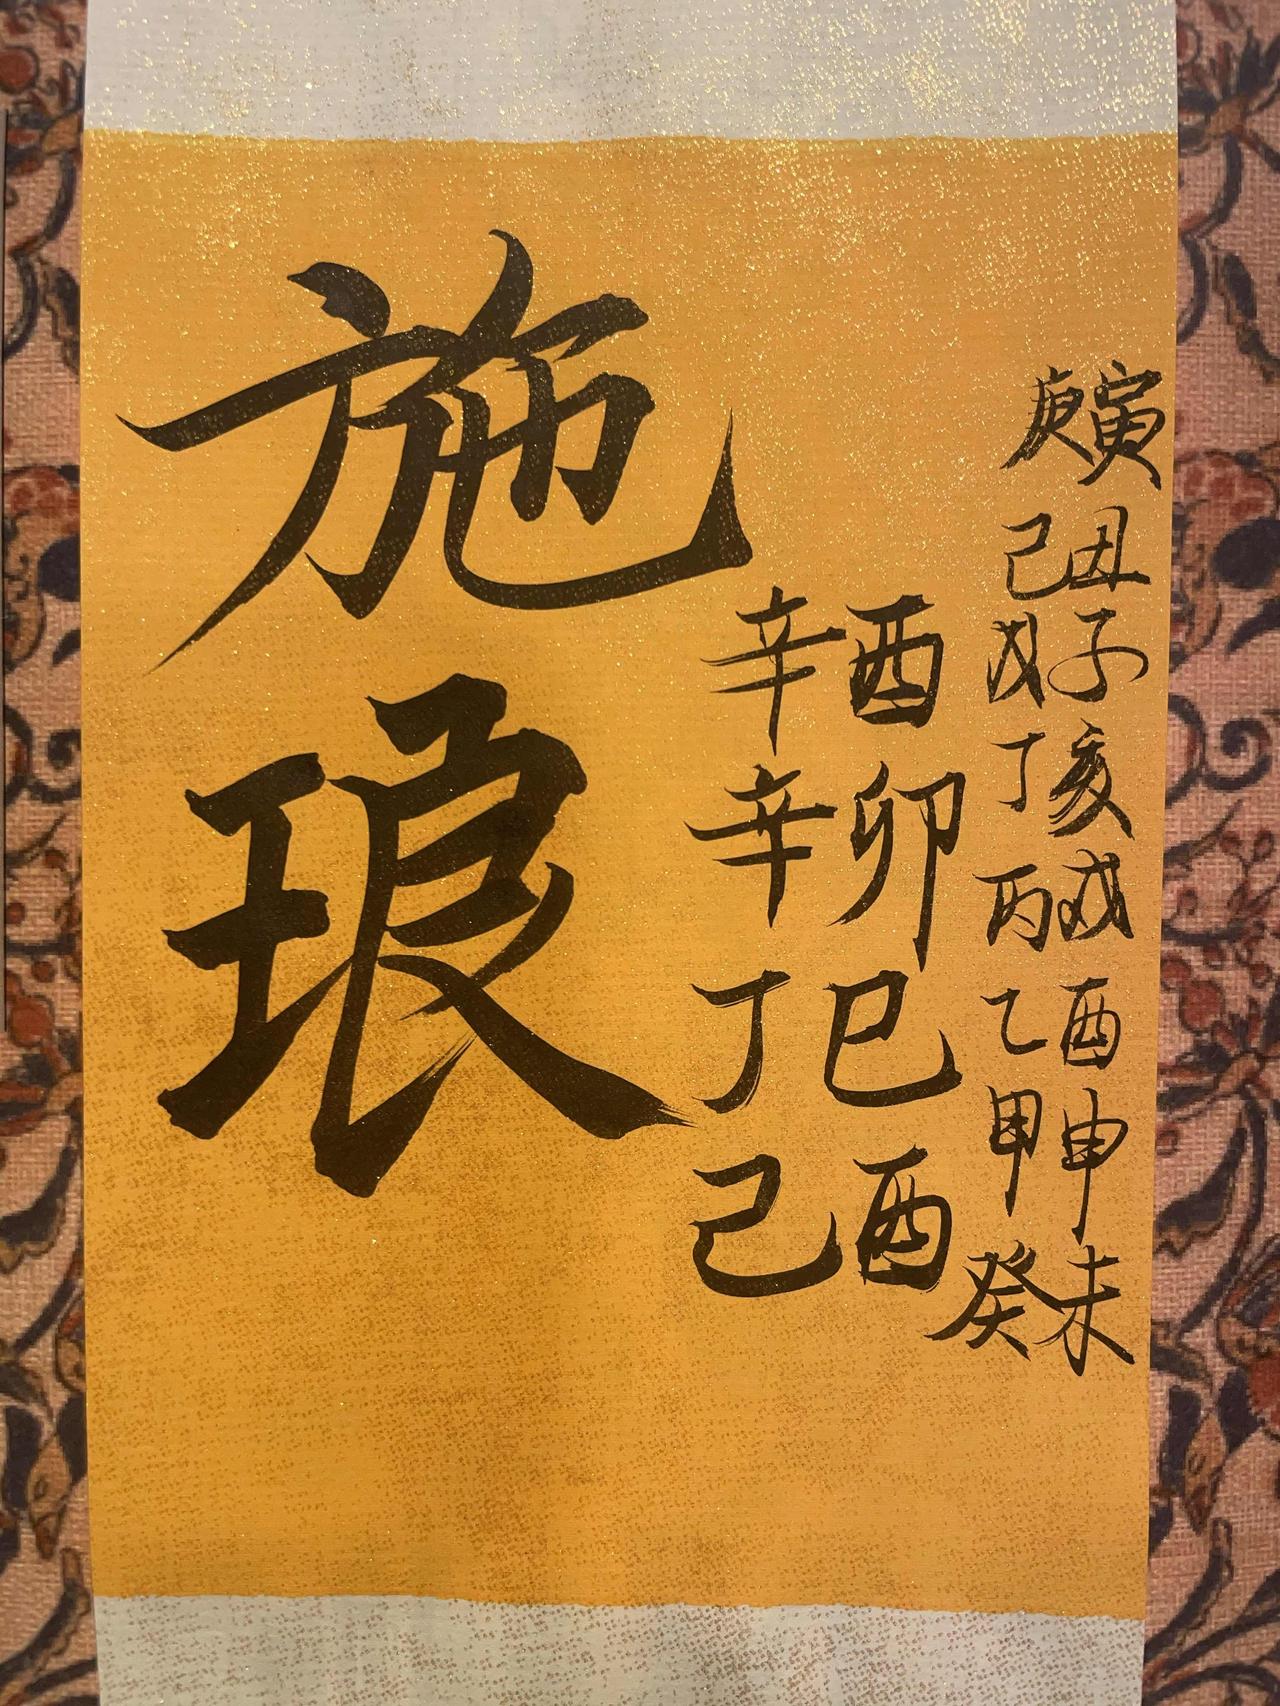 施
琅
辛酉
辛卯
丁巳
己酉
庚寅
己丑
戊子
丁亥
丙戌
乙酉
甲申
癸未